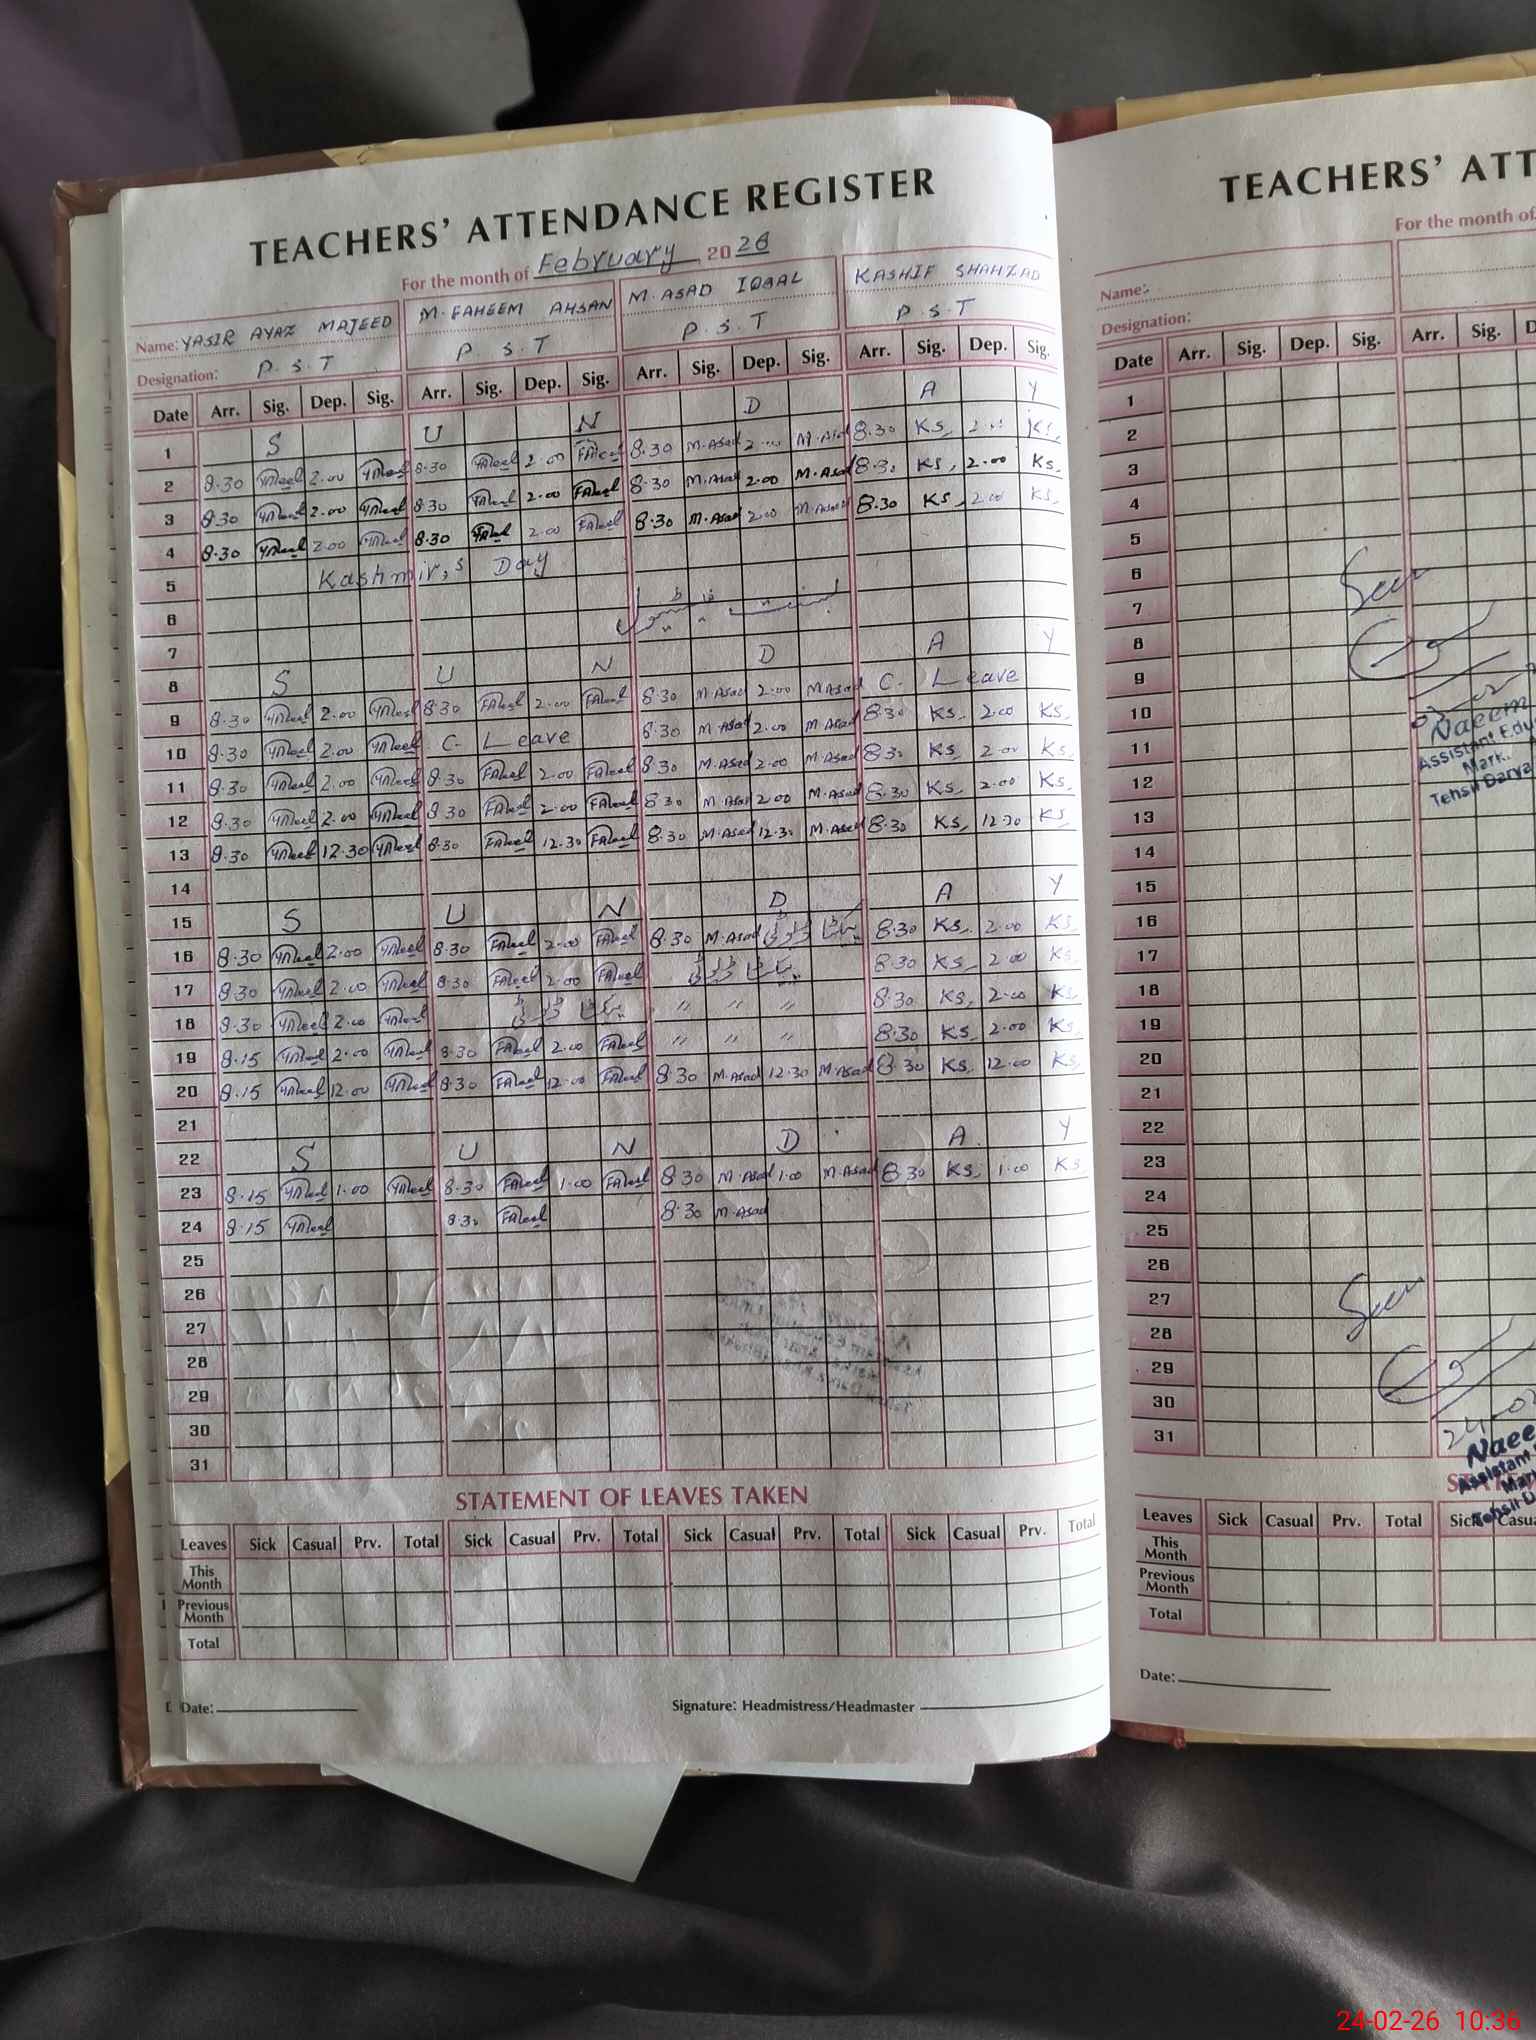 TEACHERS' ATTENDANCE REGISTER
For the month of February 2026
Name: YASIR AYAZ MAJEED M. FAHEEM AHSAN M. ASAD IQBAL KASHIF SHAHZAD
Designation: P.S.T P.S.T P.S.T P.S.T
Date Arr. Sig. Dep. Sig. Arr. Sig. Dep. Sig. Arr. Sig. Dep. Sig. Arr. Sig. Dep. Sig.
1 S U N D A Y
2 8.30 2.00 8.30 2.00 8.30 M.Asad 2.00 M.Asad 8.30 KS 2.00 KS
3 8.30 2.00 8.30 2.00 8.30 M.Asad 2.00 M.Asad 8.30 KS 2.00 KS
4 8.30 2.00 8.30 2.00 8.30 M.Asad 2.00 M.Asad 8.30 KS 2.00 KS
5 Kashmir,s Day
6
7
8 S U N D A Y
9 8.30 2.00 8.30 2.00 8.30 M.Asad 2.00 M.Asad C. Leave
10 8.30 2.00 C. Leave 8.30 M.Asad 2.00 M.Asad 8.30 KS 2.00 KS
11 8.30 2.00 8.30 2.00 8.30 M.Asad 2.00 M.Asad 8.30 KS 2.00 KS
12 8.30 2.00 8.30 2.00 8.30 M.Asad 2.00 M.Asad 8.30 KS 2.00 KS
13 8.30 12.30 8.30 12.30 8.30 M.Asad 12.30 M.Asad 8.30 KS 12.30 KS
14
15 S U N D A Y
16 8.30 2.00 8.30 2.00 8.30 M.Asad 8.30 KS 2.00 KS
17 8.30 2.00 8.30 2.00 8.30 KS 2.00 KS
18 8.30 2.00 " " " 8.30 KS 2.00 KS
19 8.15 2.00 8.30 2.00 " " " 8.30 KS 2.00 KS
20 8.15 12.00 8.30 12.00 8.30 M.Asad 12.30 M.Asad 8.30 KS 12.00 KS
21
22 S U N D A Y
23 8.15 1.00 8.30 1.00 8.30 M.Asad 1.00 M.Asad 8.30 KS 1.00 KS
24 8.15 8.30 8.30 M.Asad
25
26
27
28
29
30
31
STATEMENT OF LEAVES TAKEN
Leaves Sick Casual Prv. Total Sick Casual Prv. Total Sick Casual Prv. Total Sick Casual Prv. Total
This Month
Previous Month
Total
Date: Signature: Headmistress/Headmaster
TEACHERS' ATT
For the month of
Name:
Designation:
Date Arr. Sig. Dep. Sig. Arr. Sig. D
1
2
3
4
5
6
7
8
9
10
11
12
13
14
15
16
17
18
19
20
21
22
23
24
25
26
27
28
29
30
31
Seen
Naeem
Assistant Edu
Mark
Tehsil Darya
Seen
24-02
Naee
Assistant
Mar
Tehsil D
Leaves Sick Casual Prv. Total Sick Casua
This Month
Previous Month
Total
Date:
24-02-26 10:36